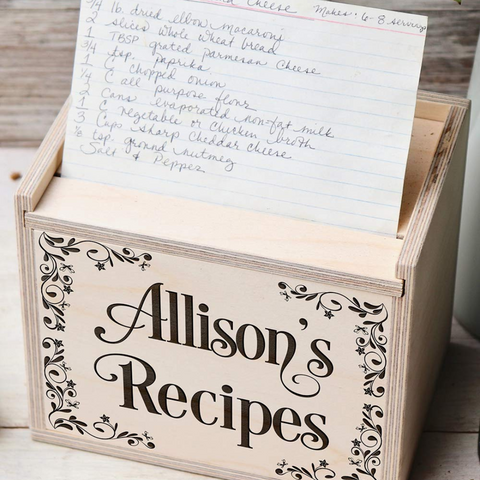 Cheese Makes: 6-8 servings
3/4 lb. dried elbow macaroni
2 slices whole wheat bread
1 TBSP grated parmesan cheese
3/4 tsp. paprika
1 C. chopped onion
1/4 C all purpose flour
2 cans evaporated nonfat milk
1 C vegetable or chicken broth
3 Cups sharp cheddar cheese
tsp. ground nutmeg
Salt & Pepper
Allison's
Recipes